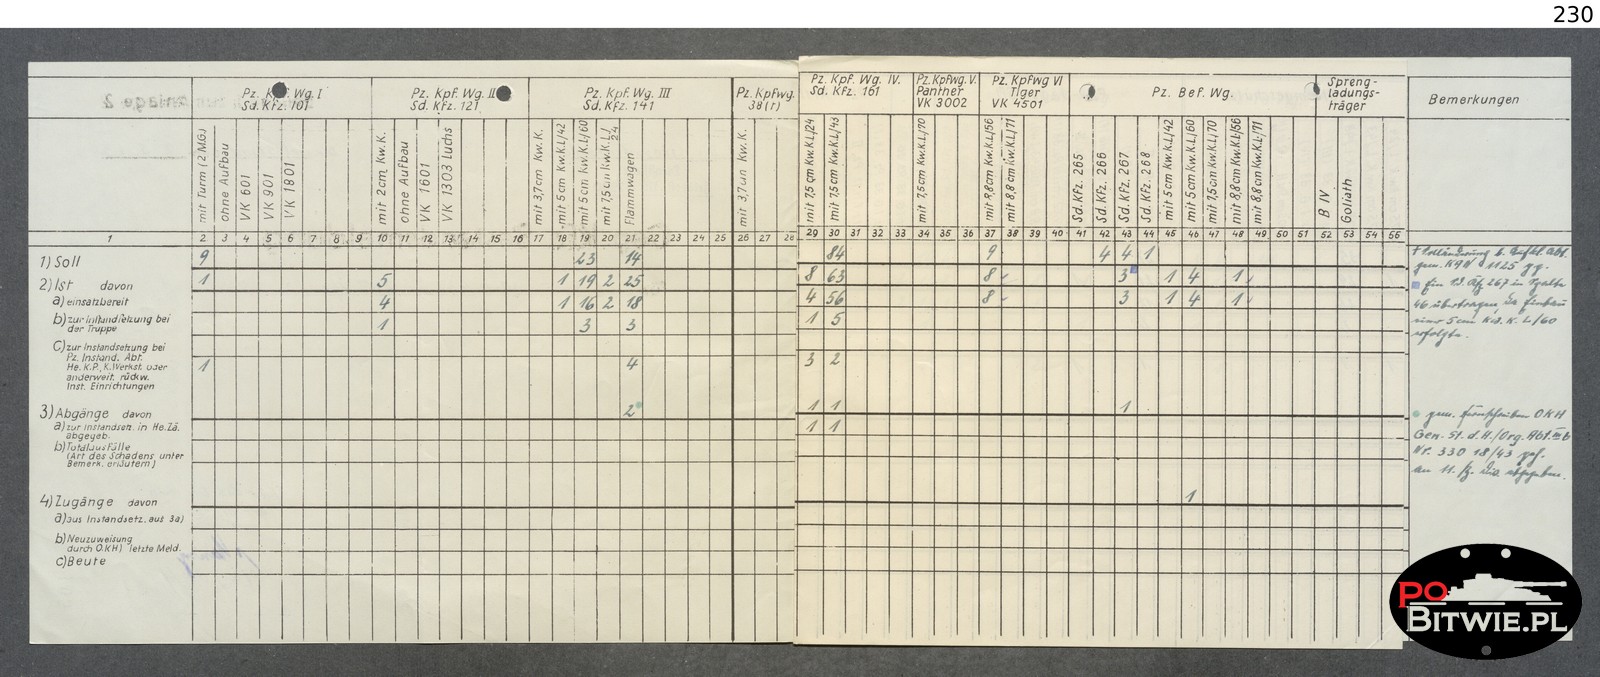 230
Pz. Kpf. Wg. I
Sd. Kfz. 101
Pz. Kpf. Wg. II
Sd. Kfz. 121
Pz. Kpf. Wg. III
Sd. Kfz. 141
Pz. Kpfwg.
38(t)
Pz. Kpf. Wg. IV.
Sd. Kfz. 161
Pz. Kpfwg. V.
Panther
VK 3002
Pz. Kpfwg VI
Tiger
VK 4501
Pz. Bef. Wg.
Spreng-
ladungs-
träger
Bemerkungen
mit Turm (2 M.G.)
ohne Aufbau
VK 601
VK 901
VK 1801
mit 2 cm Kw. K.
ohne Aufbau
VK 1601
VK 1303 Luchs
mit 3,7 cm Kw. K.
mit 5 cm Kw.K.L/42
mit 5 cm Kw.K.L/60
mit 7,5 cm Kw.K.L/24
Flammwagen
mit 3,7 cm Kw. K.
mit 7,5 cm Kw.K.L/24
mit 7,5 cm Kw.K.L/43
mit 7,5 cm Kw.K.L/70
mit 8,8 cm Kw.K.L/56
mit 8,8 cm Kw.K.L/71
Sd. Kfz. 265
Sd. Kfz. 266
Sd. Kfz. 267
Sd. Kfz. 268
mit 5 cm Kw.K.L/42
mit 5 cm Kw.K.L/60
mit 7,5 cm Kw.K.L/70
mit 8,8 cm Kw.K.L/56
mit 8,8 cm Kw.K.L/71
B IV
Goliath
1 2 3 4 5 6 7 8 9 10 11 12 13 14 15 16 17 18 19 20 21 22 23 24 25 26 27 28 29 30 31 32 33 34 35 36 37 38 39 40 41 42 43 44 45 46 47 48 49 50 51 52 53 54 55
1) Soll 9 23 14 84 9 4 4 1
2) Ist davon 1 5 1 19 2 25 8 63 8 3 1 4 1
a) einsatzbereit 4 1 16 2 18 4 56 8 3 1 4 1
b) zur Instandsetzung bei
der Truppe 1 3 3 1 5
c) zur Instandsetzung bei
Pz. Instand. Abt.
He. K.P., K.Werkst. oder
anderweit. rückw.
Inst. Einrichtungen
1 4 3 2
3) Abgänge davon 2 1 1 1
a) zur Instandset. in He. Zä.
abgegeb. 1 1
b) Totalausfälle
(Art des Schadens unter
Bemerk. erläutern)
4) Zugänge davon 1
a) aus Instandsetz. aus 3a)
b) Neuzuweisung
durch O.K.H) letzte Meld.
c) Beute
gem. K.St.N. 1125
Ein Sd. Kfz. 267 in Spalte
46 übertragen, da Einbau
einer 5 cm Kw. K. L/60
erfolgte.
gem. Fernschreiben OKH
Gen. St. d. H./Org. Abt. III b
Nr. 330 18/43
an 11. Pz. Div. abgegeben.
PO
BITWIE.PL